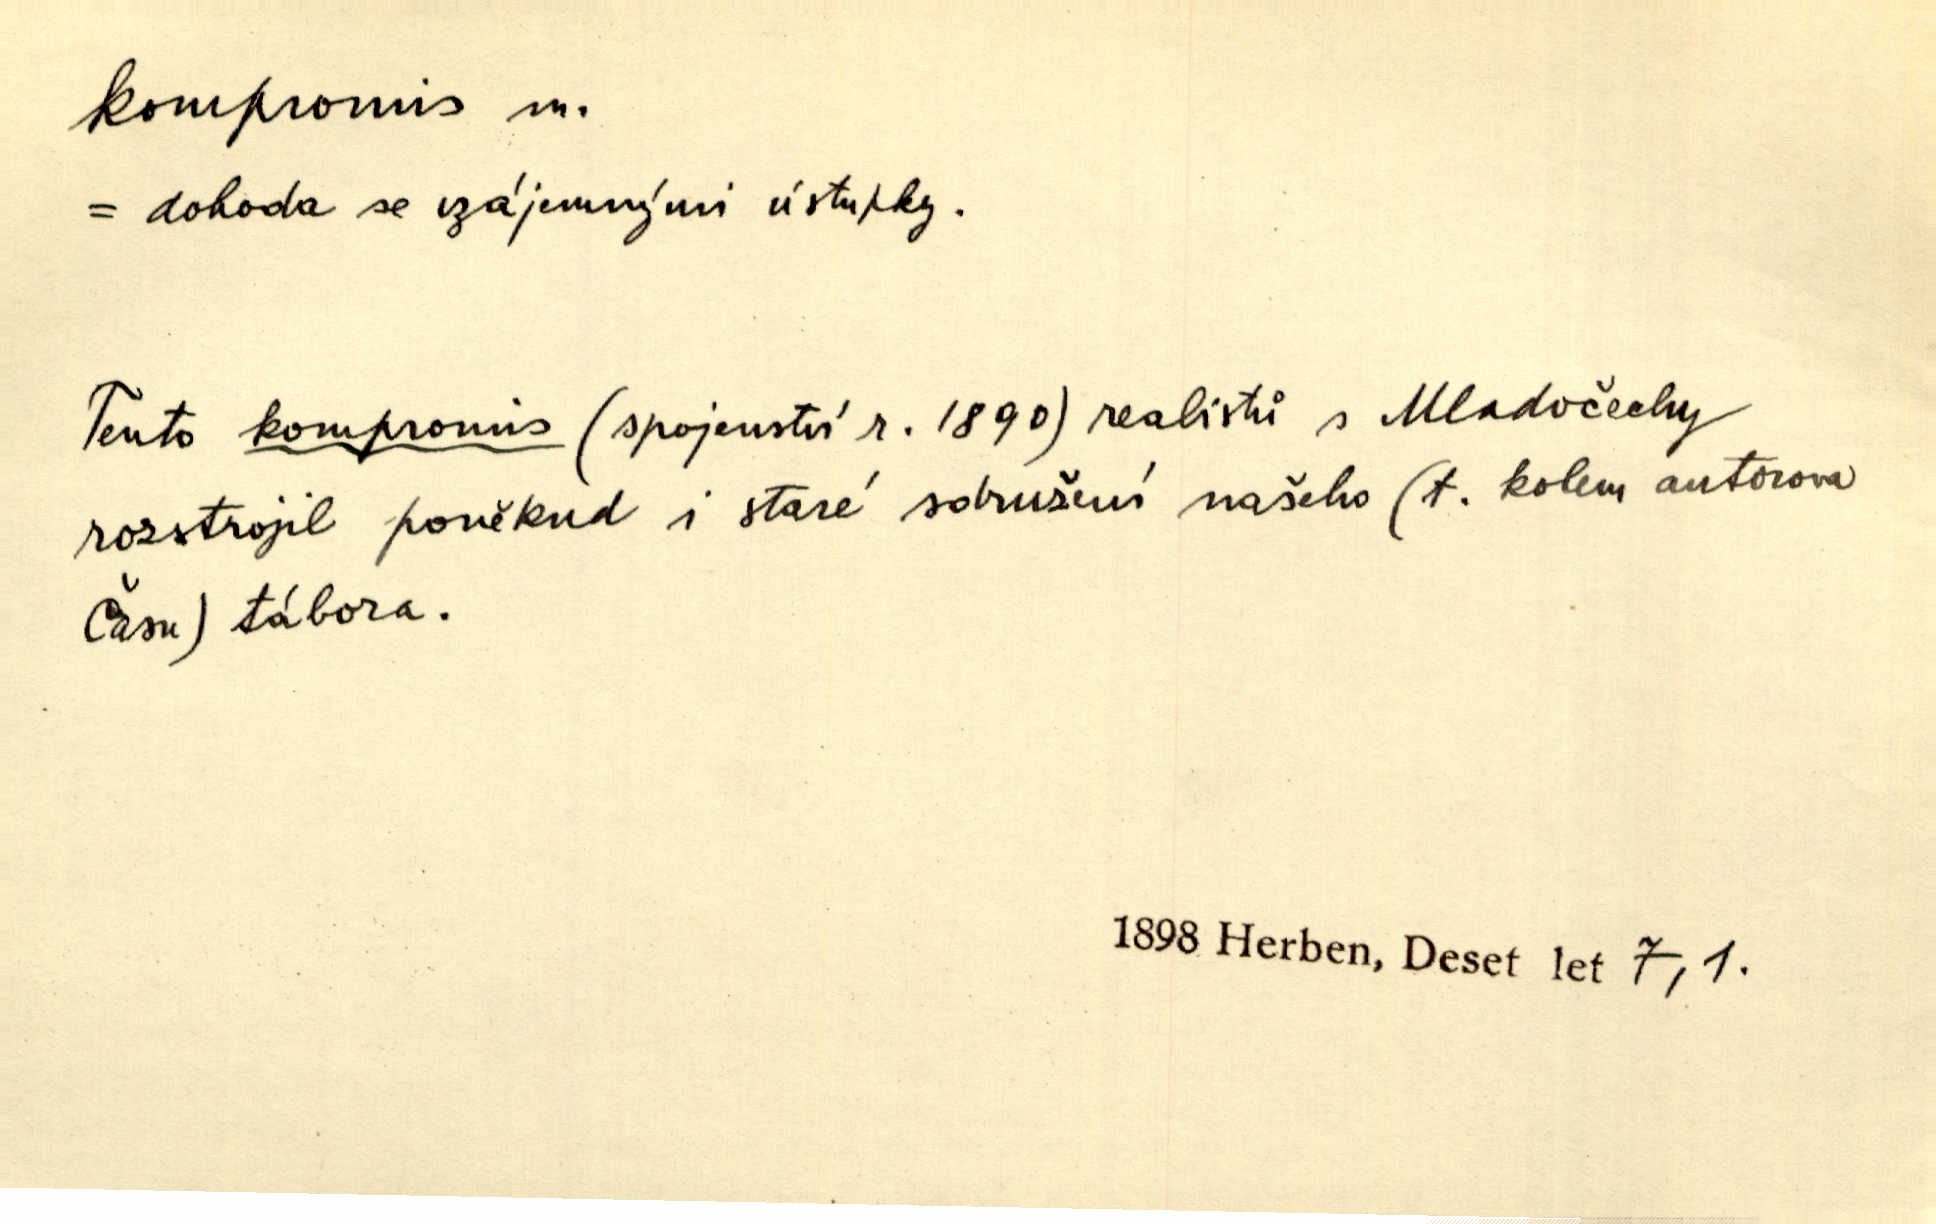 kompromis m.
= dohoda se vzájemnými ústupky.
Tento kompromis (spojenství r. 1890) realistů s Mladočechy
rozstrojil poněkud i staré sdružení našeho (t. kolem autorova
Času) tábora.
1898 Herben, Deset let 7, 1.